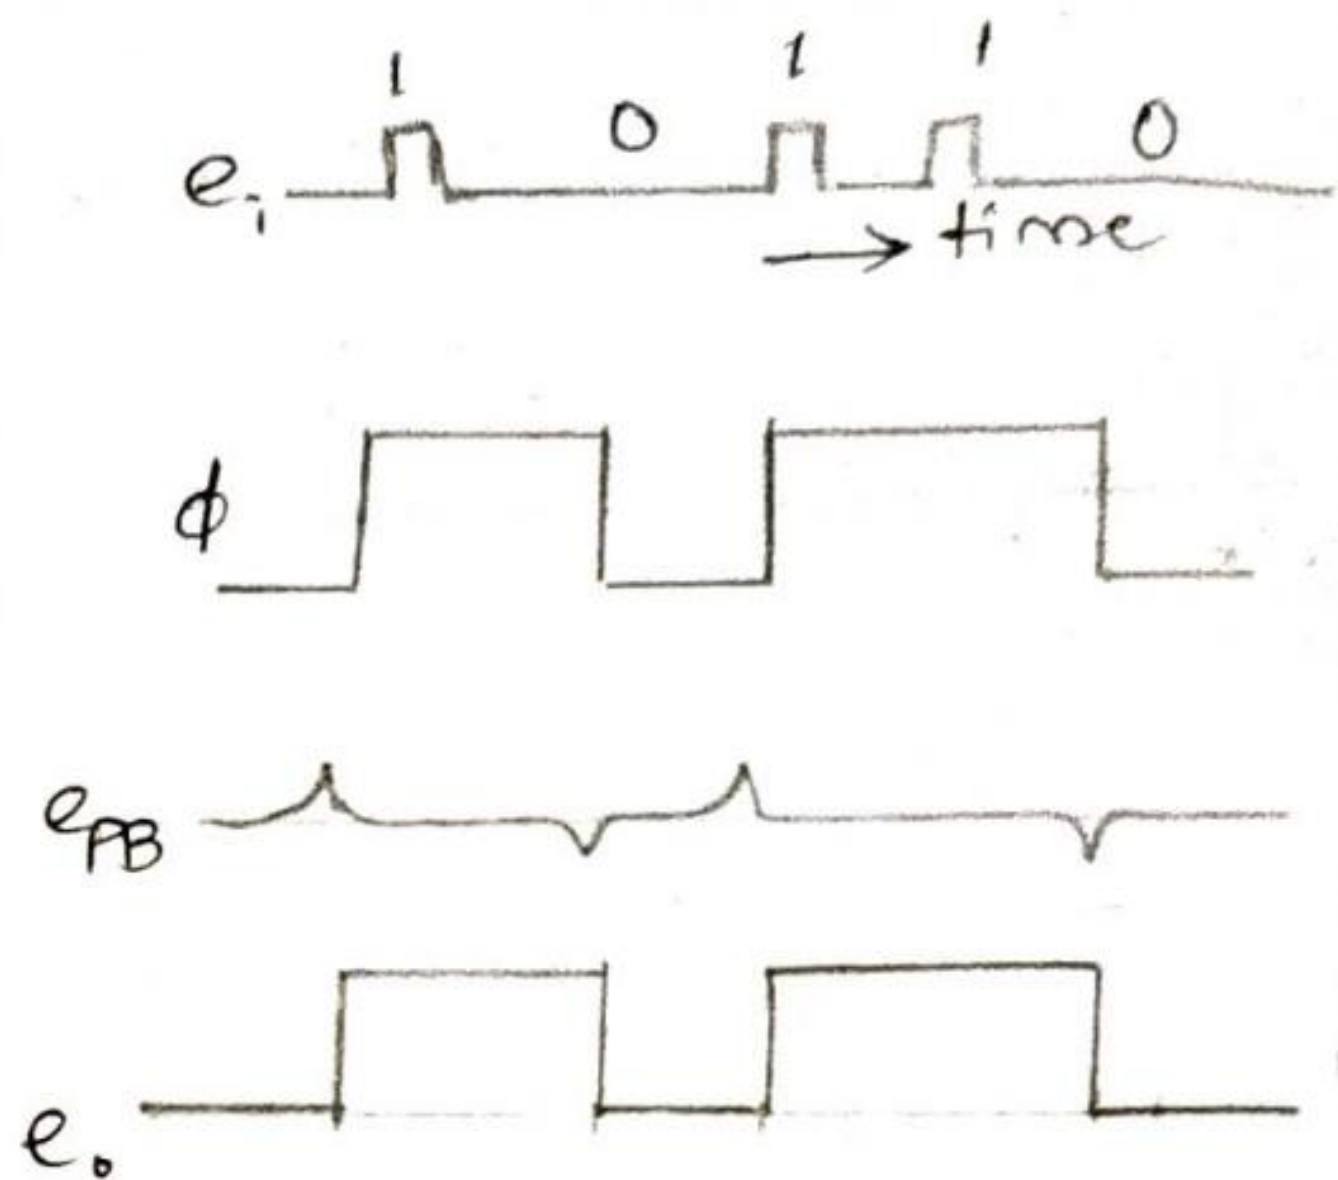 1 0 1 1 0
ei
time
ϕ
ePB
eo